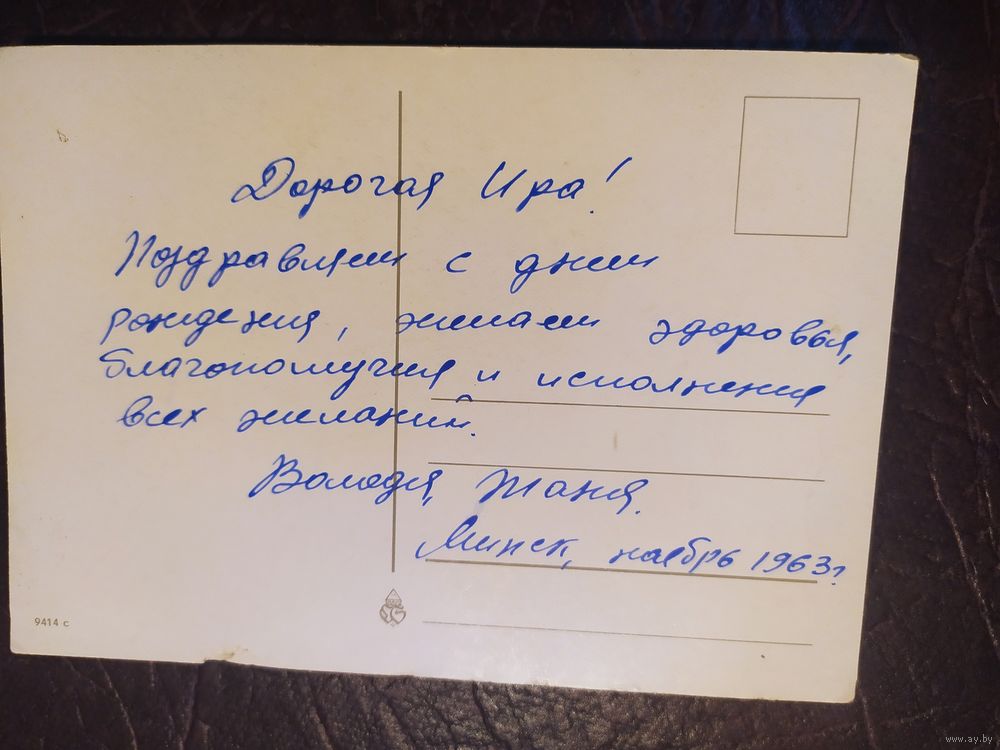 Дорогая Ира!
Поздравляем с днем
рождения, желаем здоровья,
благополучия и исполнения
всех желаний.
Володя, Таня.
Минск, ноябрь 1963 г.
9414 c
www.ay.by